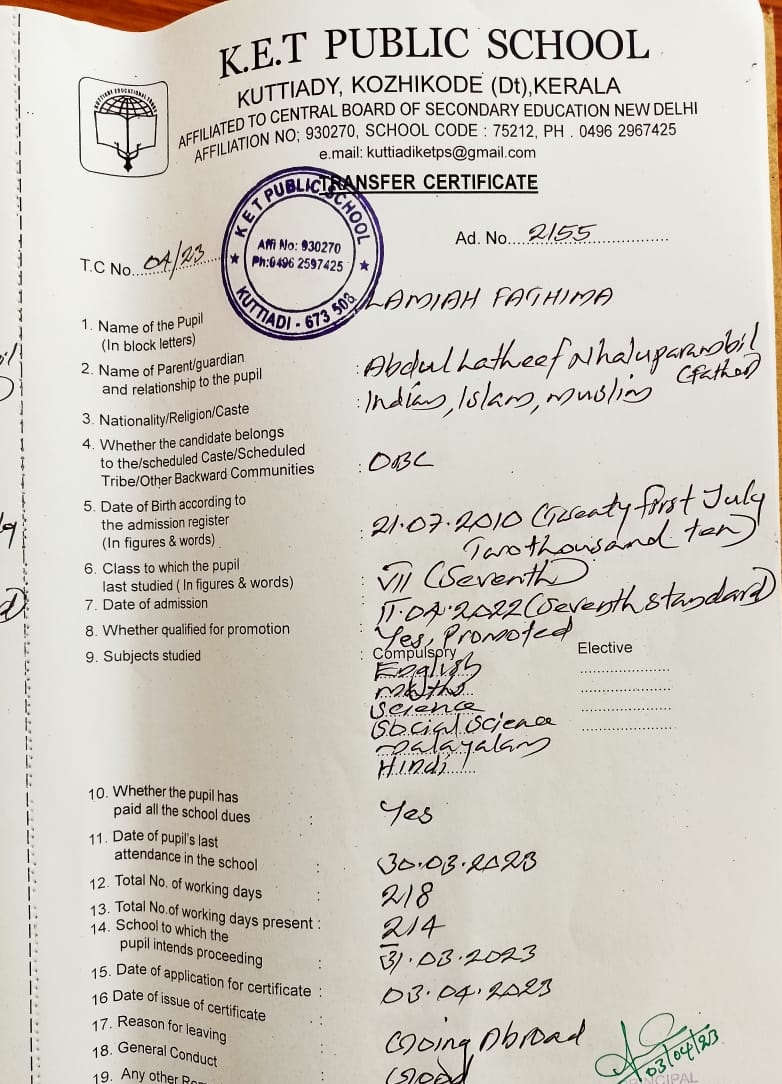 K.E.T PUBLIC SCHOOL
KUTTIADY, KOZHIKODE (Dt),KERALA
AFFILIATED TO CENTRAL BOARD OF SECONDARY EDUCATION NEW DELHI
AFFILIATION NO; 930270, SCHOOL CODE : 75212, PH . 0496 2967425
e.mail: kuttiadiketps@gmail.com
TRANSFER CERTIFICATE
KET PUBLIC SCHOOL
Affi No: 930270
Ph:0496 2597425
KUTTIADI - 673 508
T.C No...04/23
Ad. No....2155
1. Name of the Pupil
(In block letters)
LAMIAH FATHIMA
2. Name of Parent/guardian
and relationship to the pupil
: Abdul Latheef Nhaluparambil
(Father)
3. Nationality/Religion/Caste
: Indian, Islam, Muslim
4. Whether the candidate belongs
to the/scheduled Caste/Scheduled
Tribe/Other Backward Communities
: OBC
5. Date of Birth according to
the admission register
(In figures & words)
: 21.07.2010 (Twenty first July
Two thousand ten)
6. Class to which the pupil
last studied ( In figures & words)
: VII (Seventh)
7. Date of admission
: 11.04.2022 (Seventh standard)
8. Whether qualified for promotion
: Yes, Promoted
9. Subjects studied
: Compulsory
Elective
English
Maths
Science
Social Science
Malayalam
Hindi
10. Whether the pupil has
paid all the school dues
: Yes
11. Date of pupil's last
attendance in the school
: 30.03.2023
12. Total No. of working days
: 218
13. Total No.of working days present :
214
14. School to which the
pupil intends proceeding
:
15. Date of application for certificate :
31.03.2023
16 Date of issue of certificate
: 03.04.2023
17. Reason for leaving
: Going Abroad
18. General Conduct
: Good
19. Any other
03/04/23
PRINCIPAL